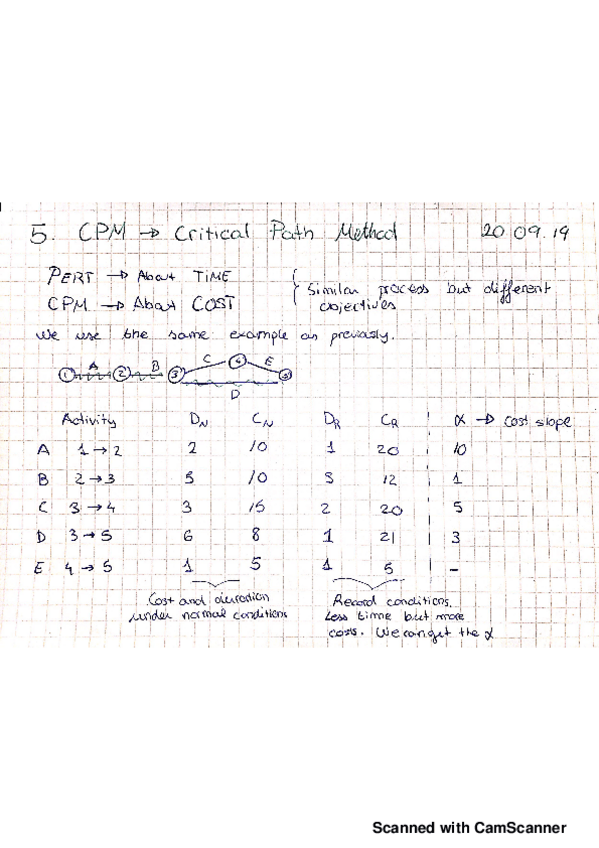 5. CPM → Critical Path Method 20 09.19
PERT → About TIME
CPM → About COST
{ Similar process but different objectives
We use the same example as previasly.
1 A 2 B 3 C 4 E 5
D
Activity DN CN DR CR α → cost slope
A 1→2 2 10 1 20 10
B 2→3 5 10 3 12 1
C 3→4 3 15 2 20 5
D 3→5 6 8 1 21 3
E 4→5 1 5 1 5 –
Cost and duration
under normal conditions
Record conditions.
Less time but more
costs. We can get the α
Scanned with CamScanner